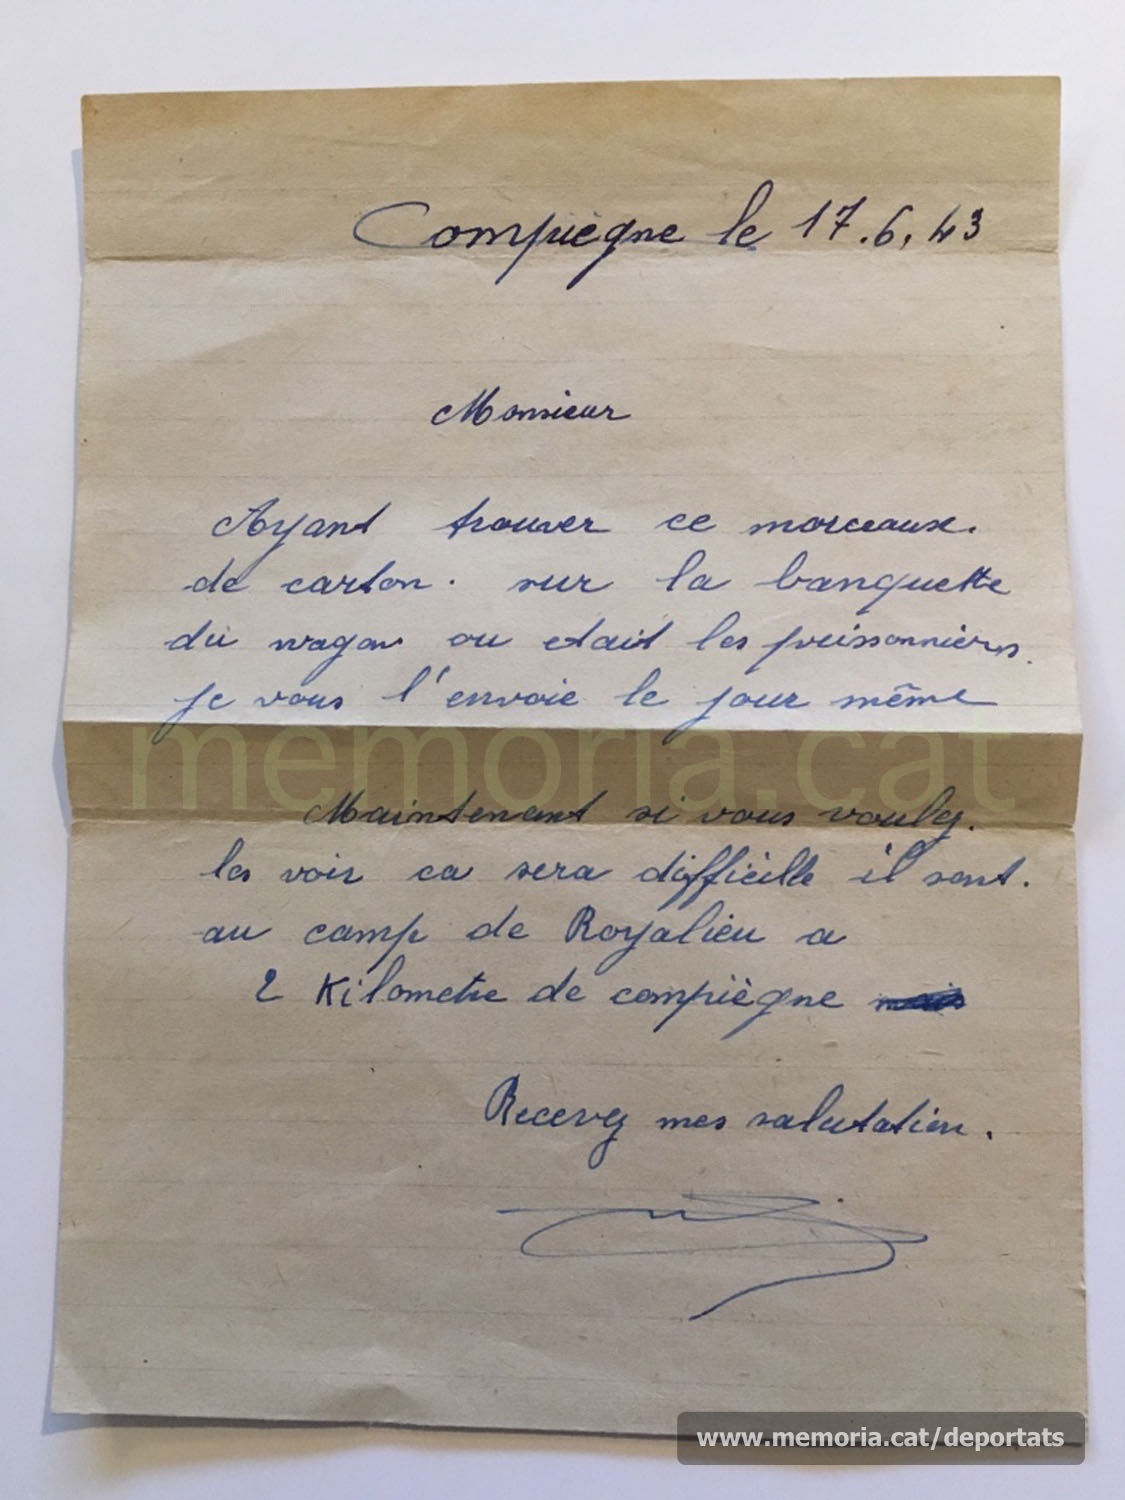 Compiègne le 17.6.43
Monsieur
Ayant trouver ce morceaux.
de carton. sur la banquette
du wagon ou etait les prissonniers.
je vous l'envoie le jour même
memoria.cat
Maintenant si vous voulez.
les voir ca sera difficille il sont.
au camp de Royalieu a
2 Kilometre de compiègne
Recevez mes salutation.
www.memoria.cat/deportats